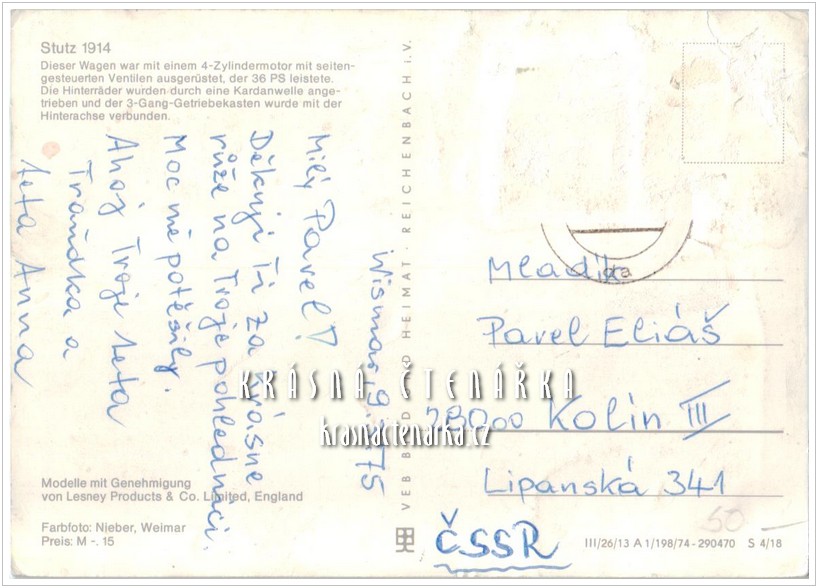 Stutz 1914
Dieser Wagen war mit einem 4-Zylindermotor mit seiten-
gesteuerten Ventilen ausgerüstet, der 36 PS leistete.
Die Hinterräder wurden durch eine Kardanwelle ange-
trieben und der 3-Gang-Getriebekasten wurde mit der
Hinterachse verbunden.
Wismar, 9. 75
Milý Pavel!
Děkuji Ti za krásné
růže na Tvoje pohlednici.
Moc mě potěšily.
Ahoj Tvoje teta
Traudka a
teta Anna
Modelle mit Genehmigung
von Lesney Products & Co. Limited, England
Farbfoto: Nieber, Weimar
Preis: M -. 15
VEB BILD UND HEIMAT · REICHENBACH i. V.
Mladík
Pavel Eliáš
28000 Kolín III
Lipanská 341
ČSSR
50
III/26/13 A 1/198/74-290470 S 4/18
KRÁSNÁ ČTENÁŘKA
krasnactenarka.cz